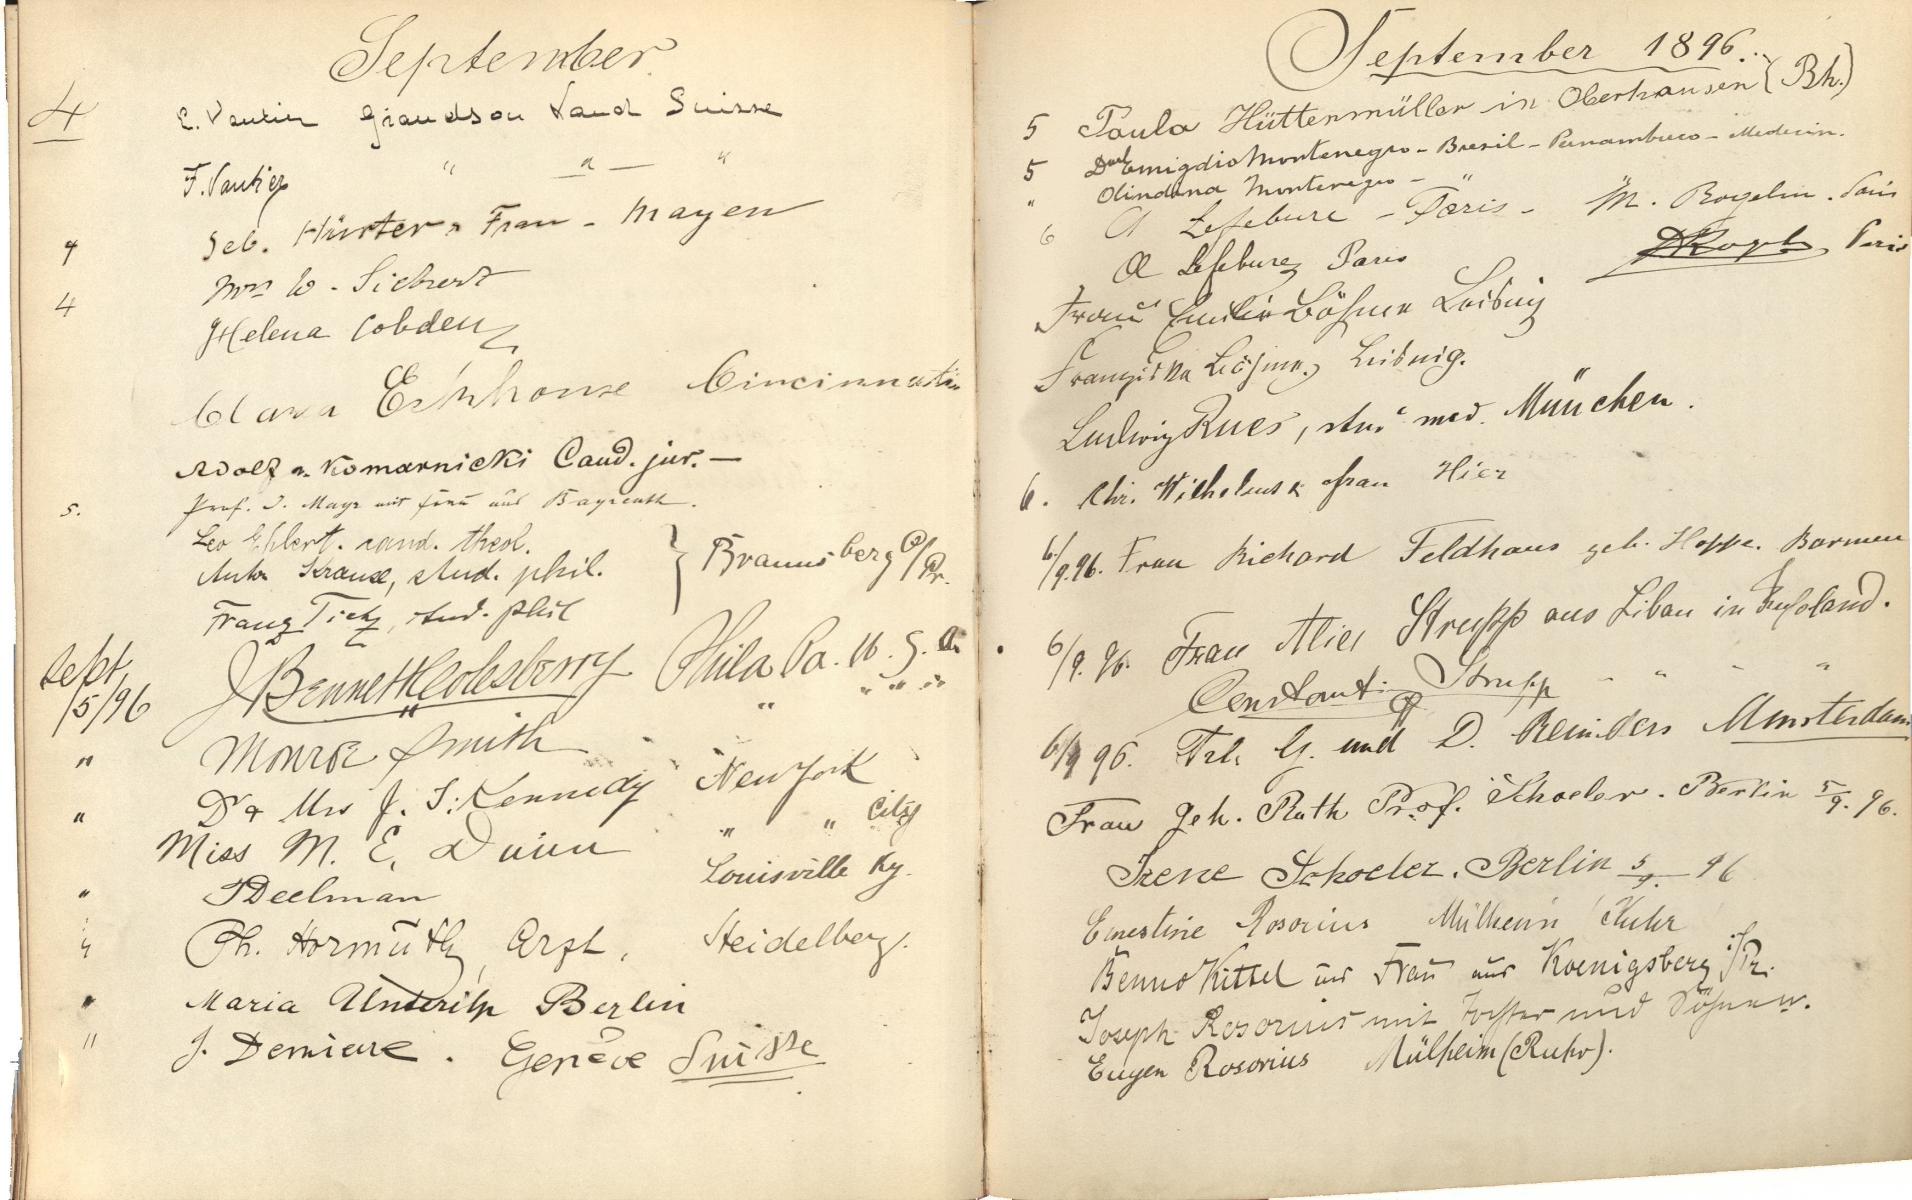 September
4 E. Vautier Grandson Vaud Suisse
F. Vautier " " "
4 Seb. Hürter u. Frau - Mayen
Mrs W. Siebert
4 Helena Cobden
Clara Cincinnati
Adolf v. Komarnicki Cand. jur. —
5. Prof. D. Mayr mit Frau aus Bayreuth.
Leo Ehlert. cand. theol.
Anton Krause, stud. phil. } Braunsberg O/Pr.
Franz Tietz, stud. phil
Sept /5/96 J Bennett Colesberry Phila Pa. U. S. A.
" Monroe Smith " " " "
" Dr & Mrs J. S. Kennedy New York City
Miss M. E. Dunn " "
" Deelman Louisville Ky.
" Ph. Hormuth, Arzt, Heidelberg.
" Maria Berlin
" J. Demierre. Genève Suisse
September 1896.
5 Paula Hüttenmüller in Oberhausen (Rh.)
5 Emigdio Montenegro - Bresil - Pernambuco - Medecin.
" Olindina Montenegro - "
6 A Lefebure - Paris - M. Paris
A Lefebure Paris Paris
Frau Emilie Böhme Leisnig
Franziska Böhme, Leisnig.
Ludwig Rues, stud med. München.
6. Chr. Wilhelms u Frau Hier
6/9.96. Frau Richard Feldhaus geb. Hoppe. Barmen
6/9. 96. Frau Alice Strupp aus Libau in Russland.
Constantin Strupp " " "
6/9 96. Frl. G. und D. Reinders Amsterdam
Frau Geh. Rath Prof. Schoeler. Berlin 5/9. 96.
Irene Schoeler. Berlin 5/9. 96
Ernestine Rosorius Mülheim Ruhr
Benno Kittel und Frau aus Koenigsberg i/Pr.
Joseph Rosorius mit Tochter und Söhnen.
Eugen Rosorius Mülheim (Ruhr).